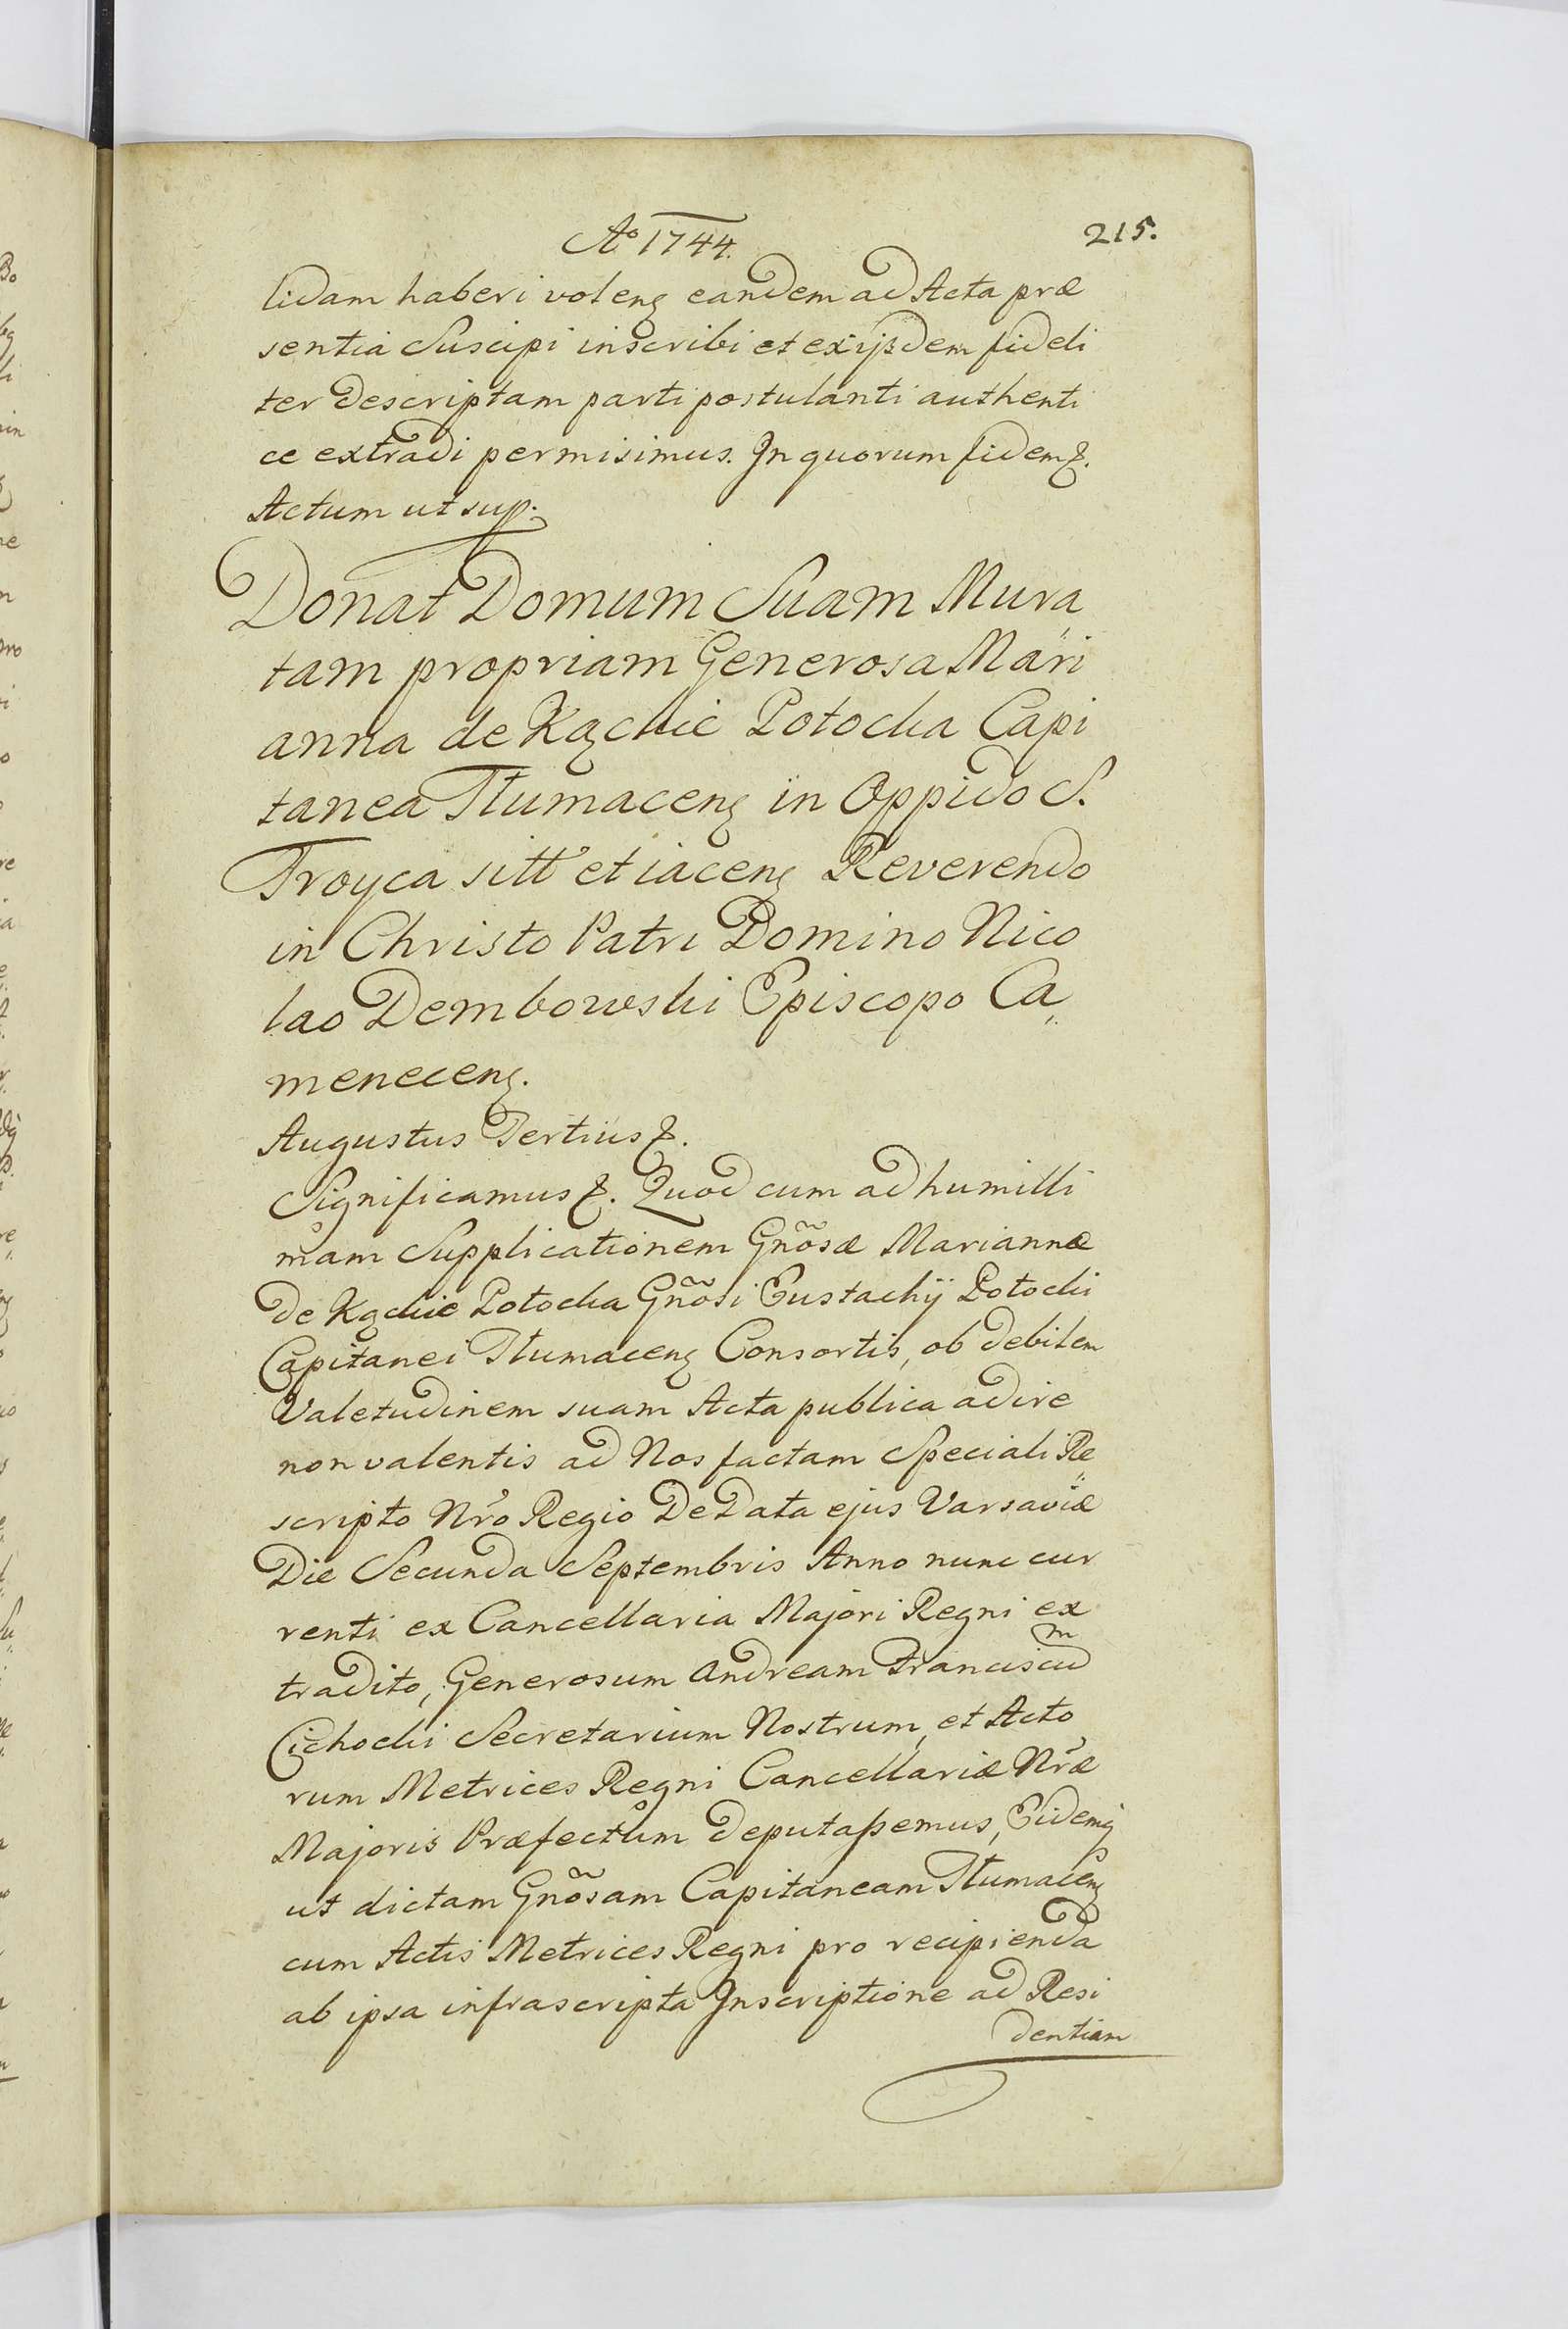 Aº 1744.
215.
lidam haberi volenς eandem ad Acta præ
sentia Suscipi inscribi et ex ijsdem fideli
ter descriptam parti postulanti authenti
ce extradi permisimus. In quorum fidem &.
Actum ut sup.
Donat Domum Suam Mura„
tam propriam Generosa Mari
anna de Kącki̅e Potocka Capi
tanea Tłumacenς in Oppido S.
Troyca sitt et iacenς Reverendo
in Christo Patri Domino Nico
lao Dembowski Episcopo Ca„
menecenς.
Augustus Tertius &.
Significamus &. Quod cum ad humilli
mam Supplicationem Gnõsæ Mariannæ
de Kąckie Potocka Gnõsi Eustachij Potocki
Capitanei Tłumacenς Consortis, ob debilem
Valetudinem suam Acta publica adire
non valentis ad Nos factam Speciali Re„
scripto Nrõ Regio De Data ejus Varsaviæ
Die Secunda Septembris Anno nunc cur
renti ex Cancellaria Majori Regni ex
tradito, Generosum Andream Franciscum
Cichocki Secretarium Nostrum, et Acto
rum Metrices Regni Cancellariæ Nræ
Majoris Præfectum deputassemus, Eidemq
ut dictam Gnõsam Capitaneam Tłumacenς
cum Actis Metrices Regni pro recipienda
ab ipsa infrascripta Inscriptione ad Resi
dentiam